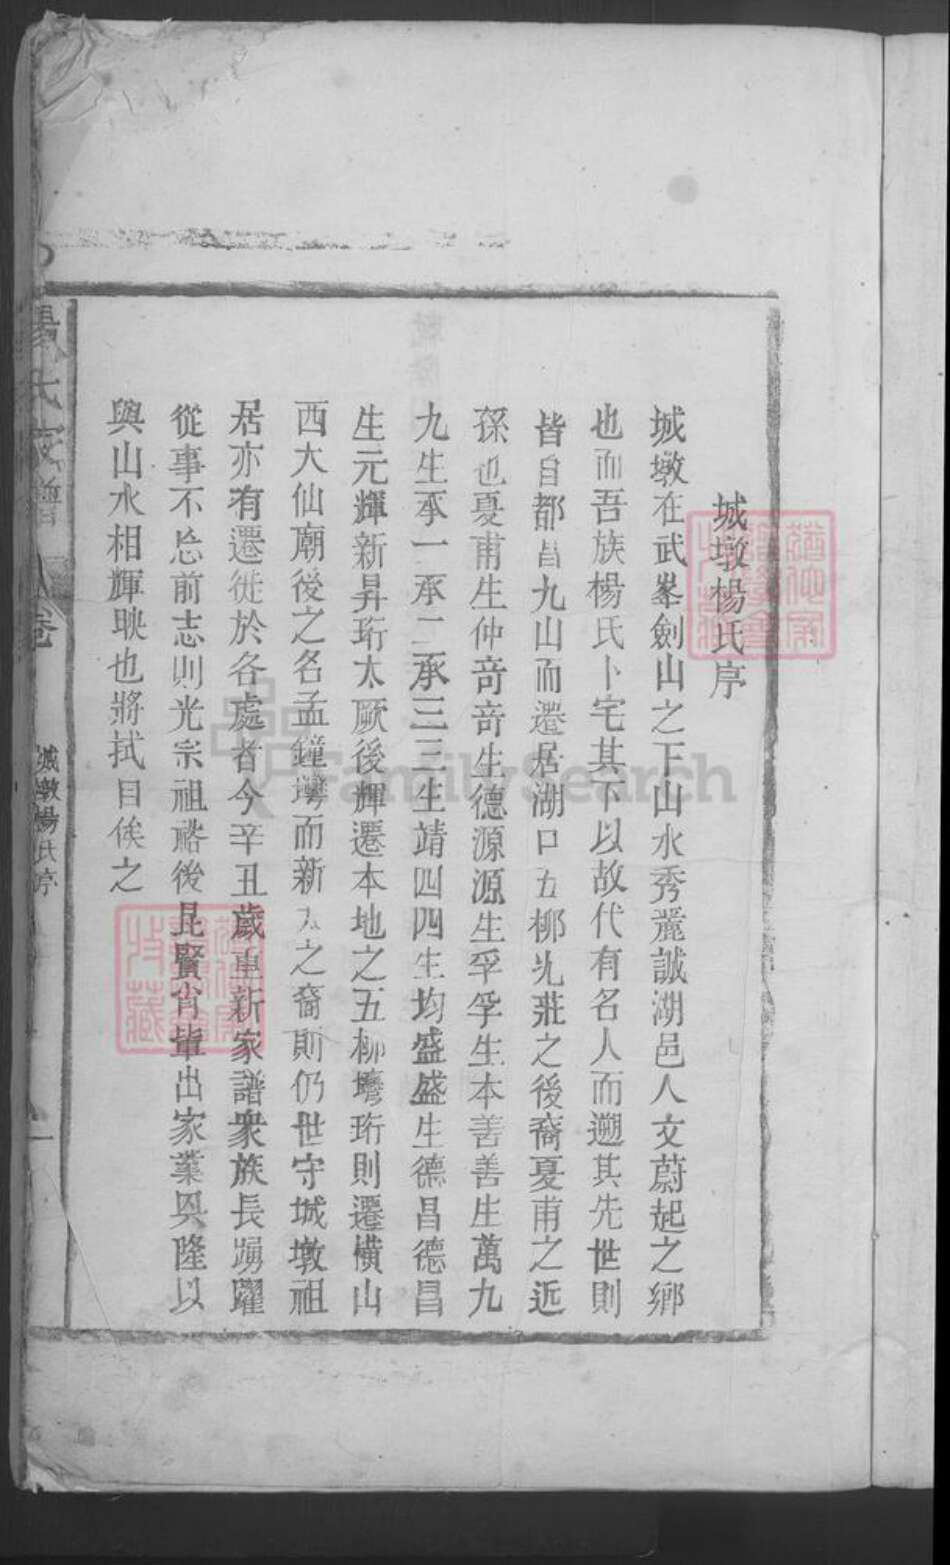 城墩楊氏序
城墩在武峯劍山之下山水秀麗誠湖邑人文蔚起之鄉
也而吾族楊氏卜宅其下以故代有名人而遡其先世則
皆自都昌九山而遷居湖口五柳北莊之後裔憂甫之近
孫也憂甫生仲奇奇生德源源生孚孚生本善善生萬九
九生承一承二承三三生靖四四生均盛盛生德昌德昌
生元輝新昇珩太厥後輝遷本地之五柳墈珩則遷橫山
西大仙廟後之名孟鐘墈而新太之裔則仍世守城墩祖
居亦有遷徙於各處者今辛丑歲重新家譜衆族長踴躍
從事不忘前志則光宗祖裕後昆賢肖輩出家業興隆以
與山水相輝映也將拭目俟之
楊氏家譜
卷
城墩楊氏序
FamilySearch